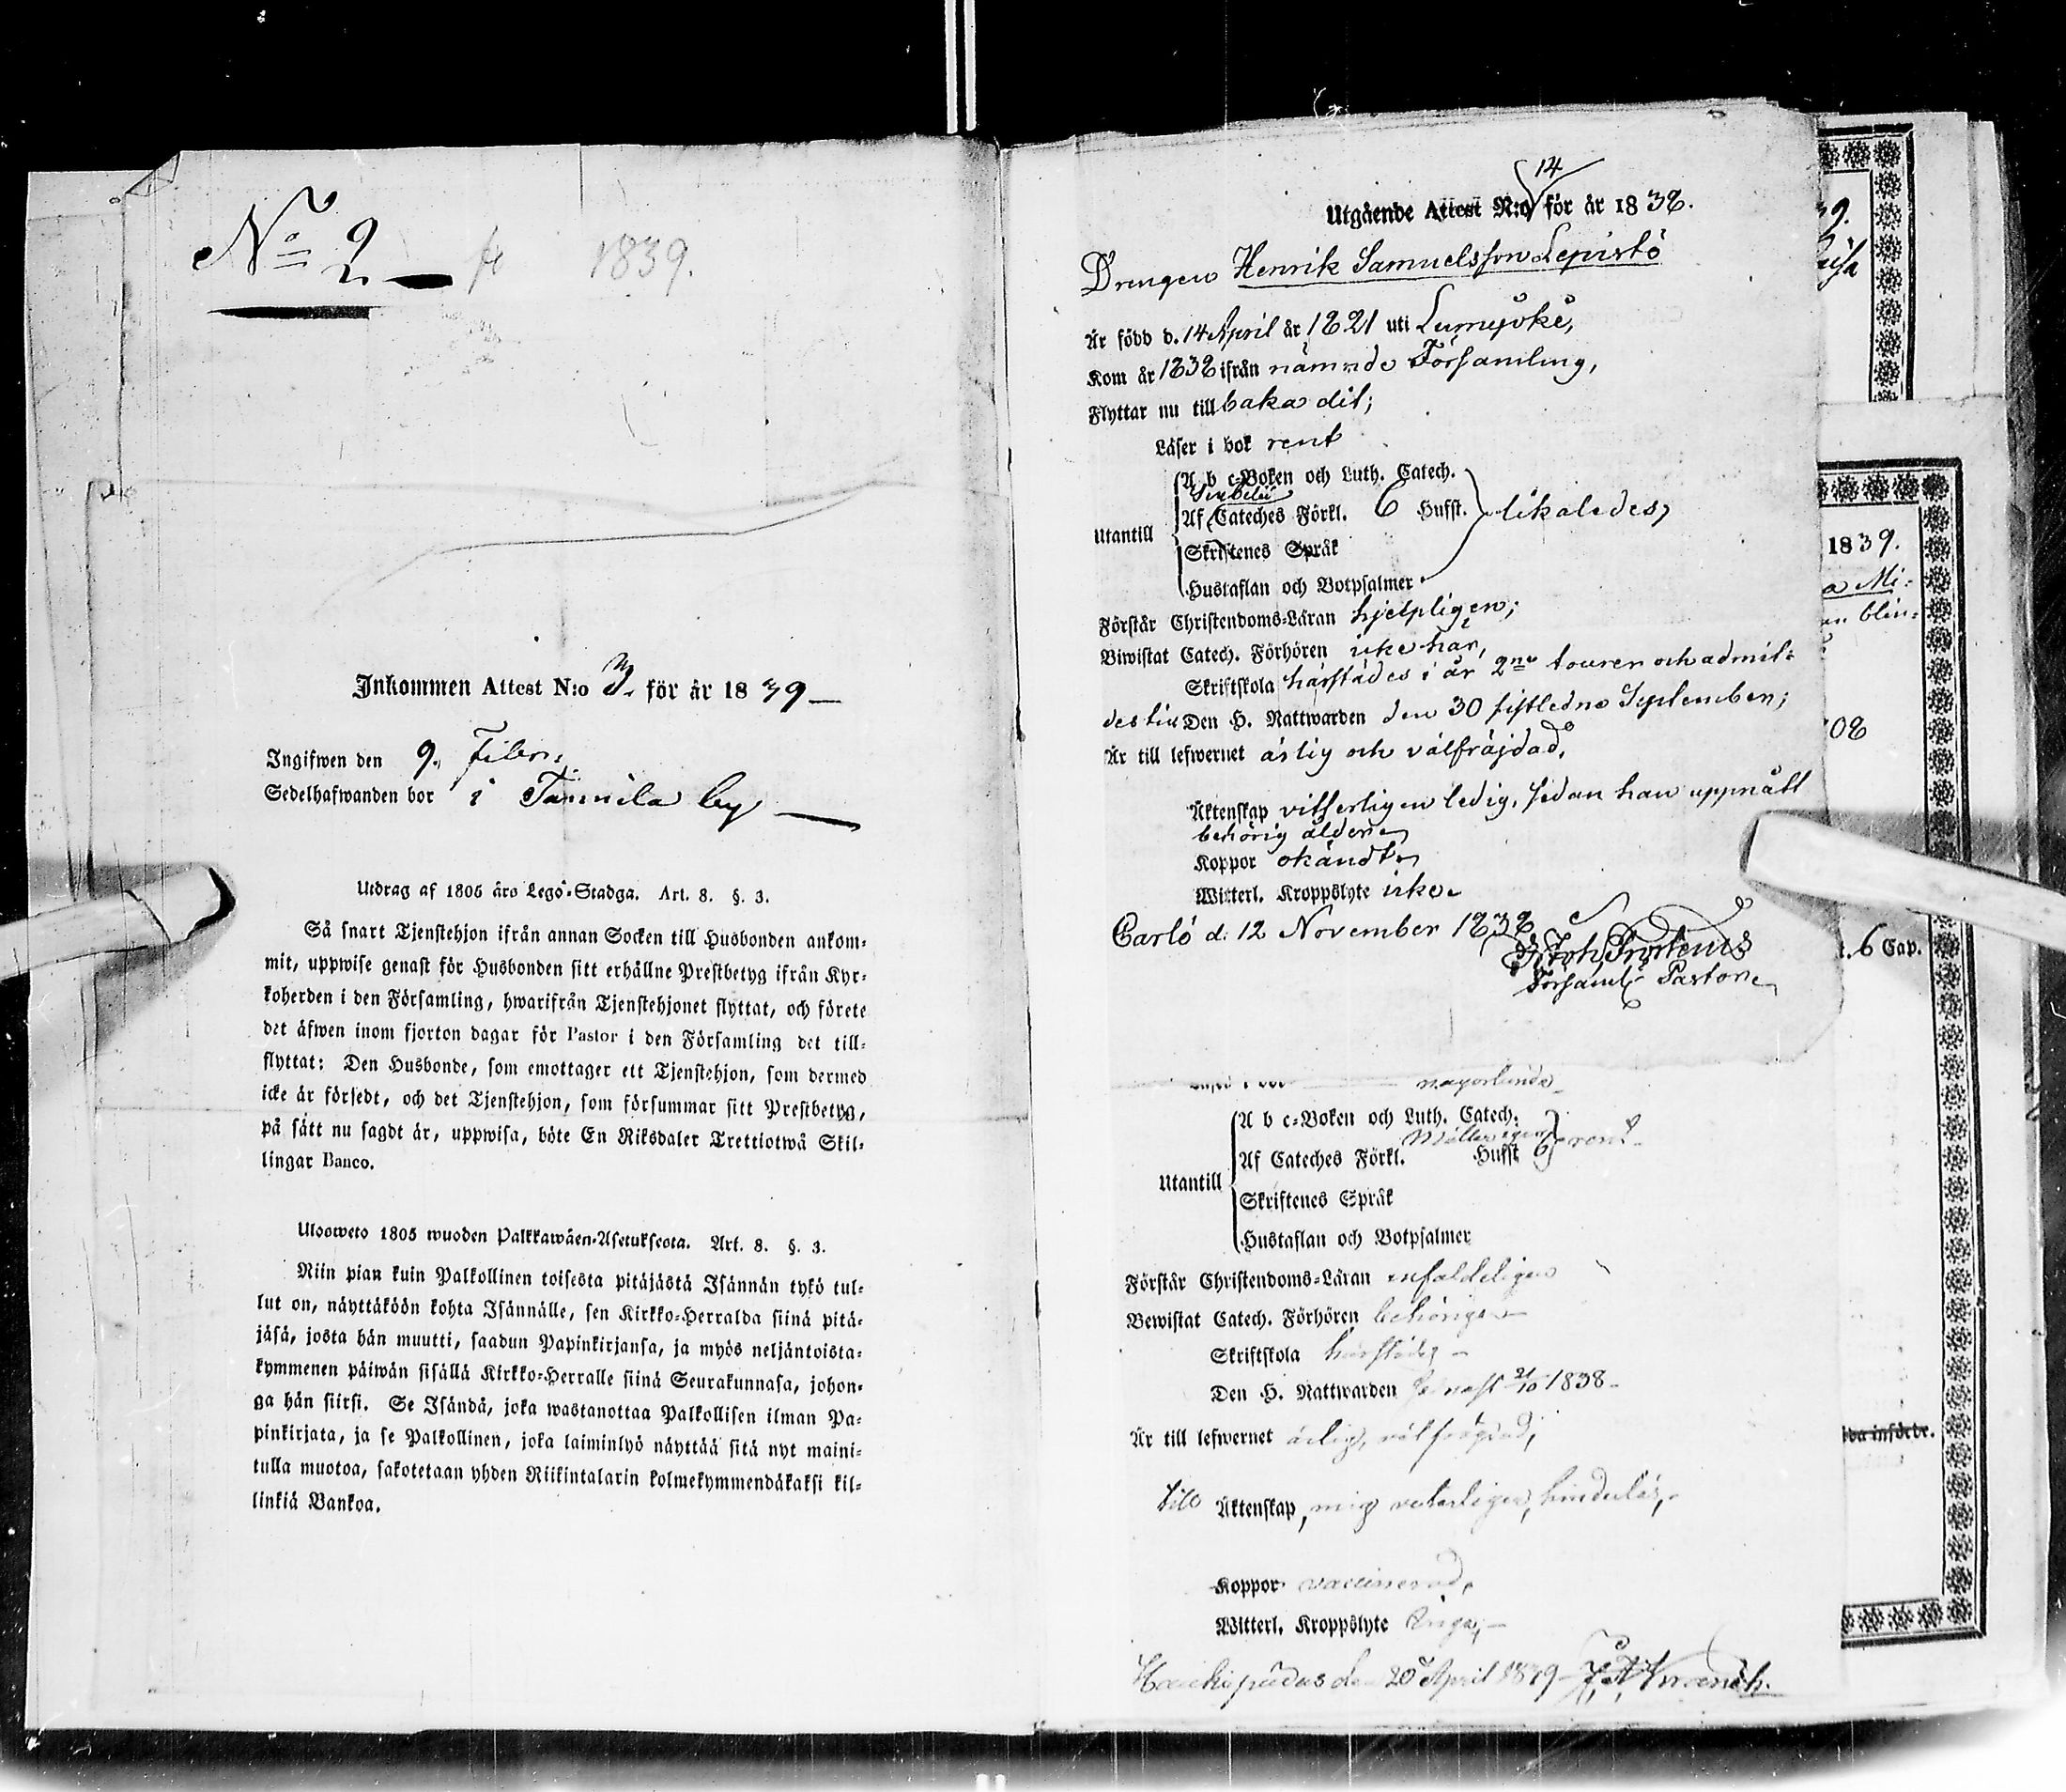 No 2 1839.
Inkommen Attest N:o 3. för år 1839
Ingifwen den 9. Febr.
Sedelhafwanden bor i Tarmila by
Utdrag af 1805 års Lego-Stadga. Art. 8. §. 3.
Så snart Tjenstehjon ifrån annan Socken till Husbonden ankom-
mit, uppwise genast för Husbonden sitt erhållne Prestbetyg ifrån Kyr-
koherden i den Församling, hwarifrån Tjenstehjonet flyttat, och förete
det äfwen inom fjorton dagar för Pastor i den Församling det till-
flyttat: Den Husbonde, som emottager ett Tjenstehjon, som dermed
icke är försedt, och det Tjenstehjon, som försummar sitt Prestbetyg,
på sätt nu sagdt är, uppwisa, böte En Riksdaler Trettiotwå Skil-
lingar Banco.
Ulosweto 1805 wuoden Palkkawäen-Asetuksesta. Art. 8. §. 3.
Niin pian kuin Palkollinen toisesta pitäjästä Isännän tykö tul-
lut on, näyttäköön kohta Isännälle, sen Kirkko-Herralda siinä pitä-
jäsä, josta hän muutti, saadun Papinkirjansa, ja myös neljäntoista-
kymmenen päiwän sisällä Kirkko-Herralle siinä Seurakunnasa, johon-
ga hän siirsi. Se Isändä, joka wastanottaa Palkollisen ilman Pa-
pinkirjata, ja se Palkollinen, joka laiminlyö näyttää sitä nyt maini-
tulla muotoa, sakotetaan yhden Riikintalarin kolmekymmendäkaksi kil-
linkiä Bankoa.
14
Utgående Attest N:o för år 1838.
Drengen Henrik Samuelsson Lepistö
Är född d. 14 April år 1821 uti Lumijoki,
Kom år 1838 ifrån nämnde Församling,
Flyttar nu tillbaka dit;
Läser i bok rent
A b c-Boken och Luth. Catech.
Utantill Af Cateches Förkl. 6 Hufst. likaledes,
Skriftenes Språk
Hustaflan och Botpsalmer
Förstår Christendoms-Läran hjelpligen;
Biwistat Catech. Förhören icke här,
Skriftskola härstädes i år 2ne tourer och admit-
des till Den H. Nattwarden den 30 sistledne September;
Är till lefwernet ärlig och välfräjdad,
Äktenskap vitterligen ledig, sedan han uppnått
behörig ålder
Koppor okändt
Witterl. Kroppslyte icke.
Carlö d. 12 November 1838
Församl. Pastor
A b c-Boken och Luth. Catech.
Af Cateches Förkl. Hufst. 6 rent
Utantill
Skriftenes Språk
Hustaflan och Botpsalmer
Förstår Christendoms-Läran enfaldeligen
Bewistat Catech. Förhören behörigen
Skriftskola härstädes
Den H. Nattwarden senast 21/10 1838
Är till lefwernet ärlig, välfräjdad,
till Äktenskap, mig veterligen, hinderlös,
Koppor vaccinerad,
Witterl. Kroppslyte inga,
Haukipudas den 20 April 1839
1839.
a Mi-
6 Cap.